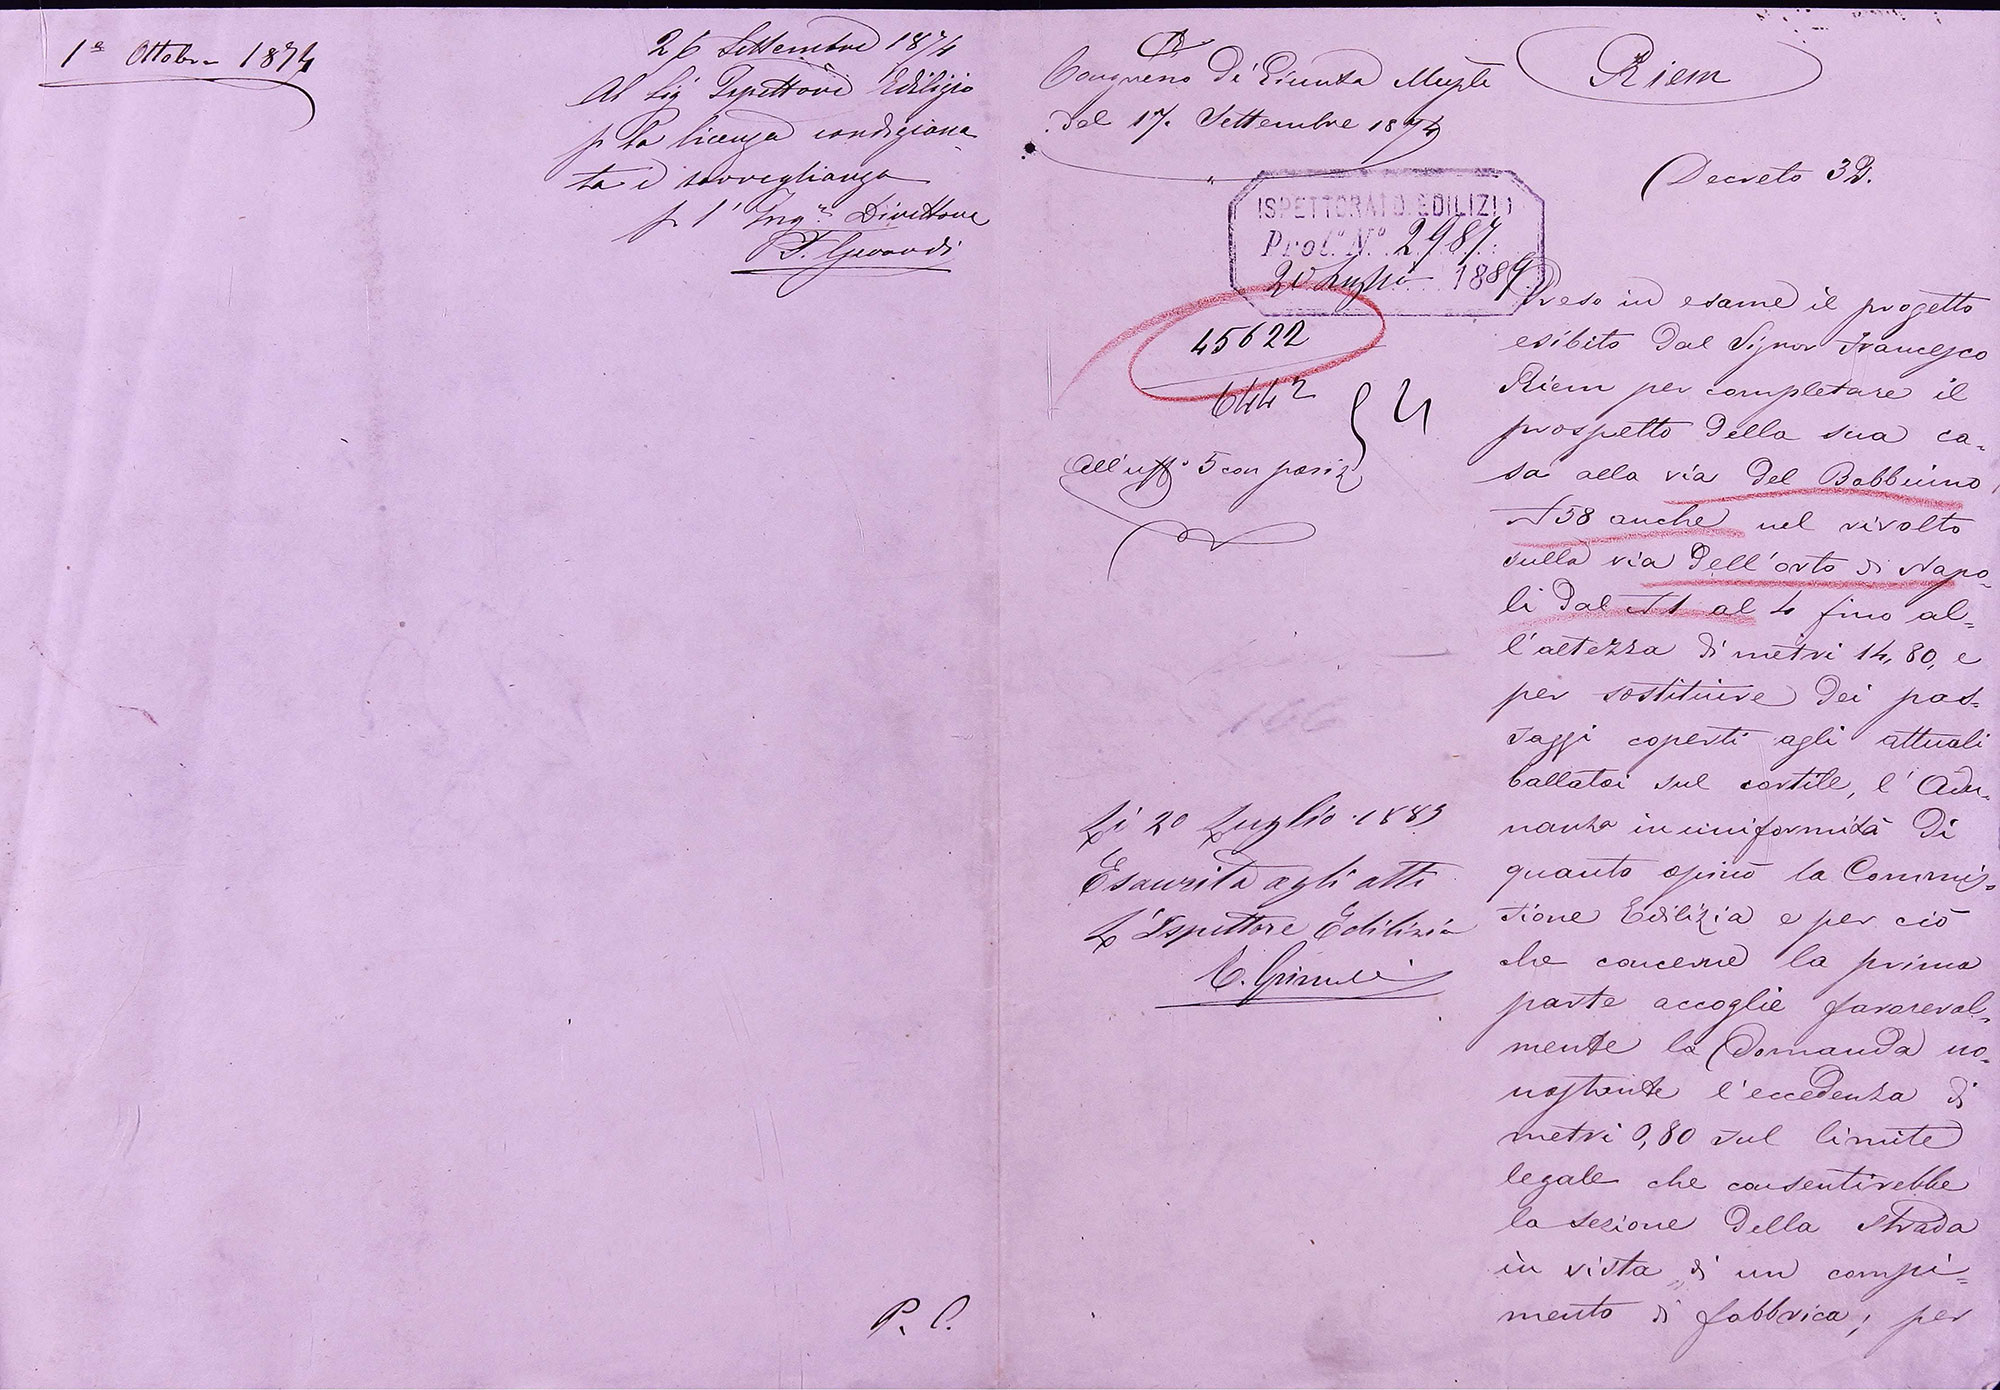 1ª Ottobre 1874
26 Settembre 1874
Al Sigr Ispettore Edilizio
p la licenza condiziona
ta e sorveglianza
p l' Ingre Direttore
P. C.
Congresso di Giunta Muple
del 17. Settembre 1874
ISPETTORATO EDILIZIO
Prol. N.° 2987
20 Luglio 1889
45622
6442
All'uffo 5 con posiz
166
Li 20 Luglio 1889
Esaurita agli atti
L'Ispettore Edilizio
Riem
Decreto 32.
Preso in esame il progetto
esibito dal Signor Francesco
Riem per completare il
prospetto della sua ca=
sa alla via del Babbuino
N 58 anche nel rivolto
sulla via dell'orto di Napo=
li dal N 1 al 4 fino al=
l'altezza di metri 14,80, e
per sostituire dei pas=
saggi coperti agli attuali
ballatoi sul cortile, l'Adu=
nanza in uniformità di
quanto opinò la Commis=
sione Edilizia e per ciò
che concerne la prima
parte accoglie favoreval=
mente la Domanda no=
nostante l'eccedenza di
metri 0,80 sul limite
legale che consentirebbe
la sezione della strada
in vista di un compi=
mento di fabbrica; per